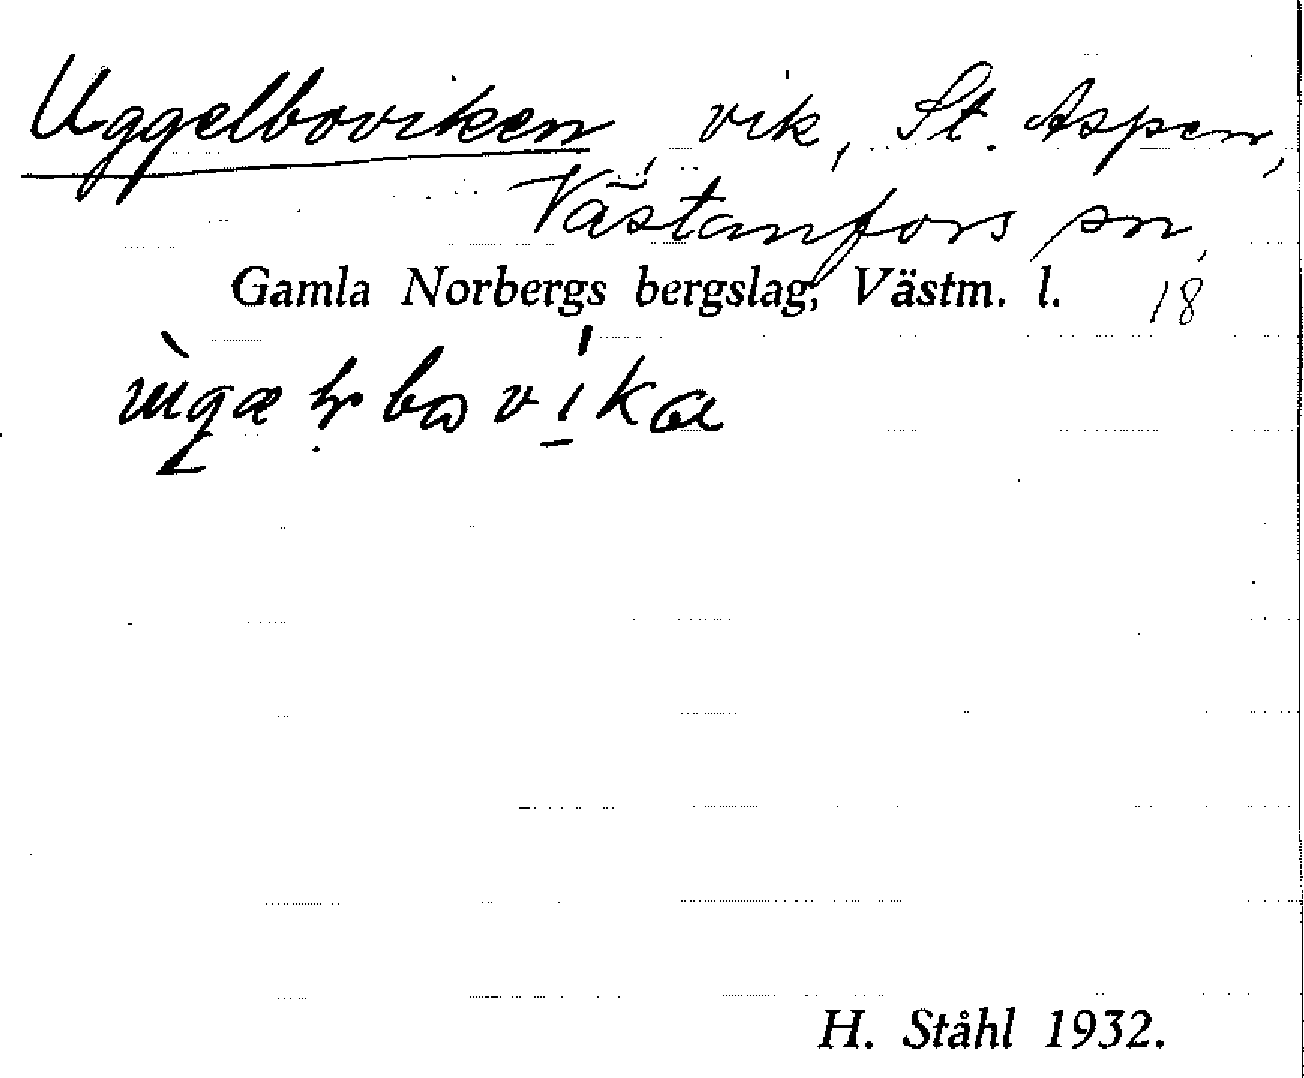 Uggelboviken, vik, St. Aspen,
Västanfors sn,
Gamla Norbergs bergslag, Västm. l. 18
H. Ståhl 1932.